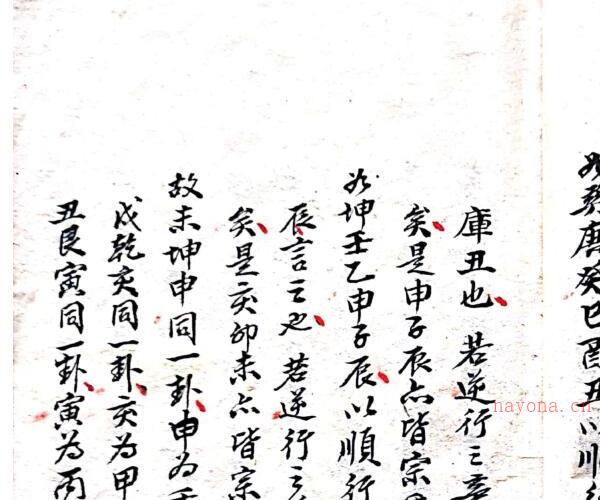 如癸庚癸巳酉丑以順行
庫丑也若逆行之
矣是申子辰亦皆宗
如坤壬乙申子辰以順行
辰言之也若逆行之
矣是亥卯未亦皆宗
故未坤申同一卦申為壬
戌乾亥同一卦亥為甲
丑艮寅同一卦寅為丙
nayona.cn